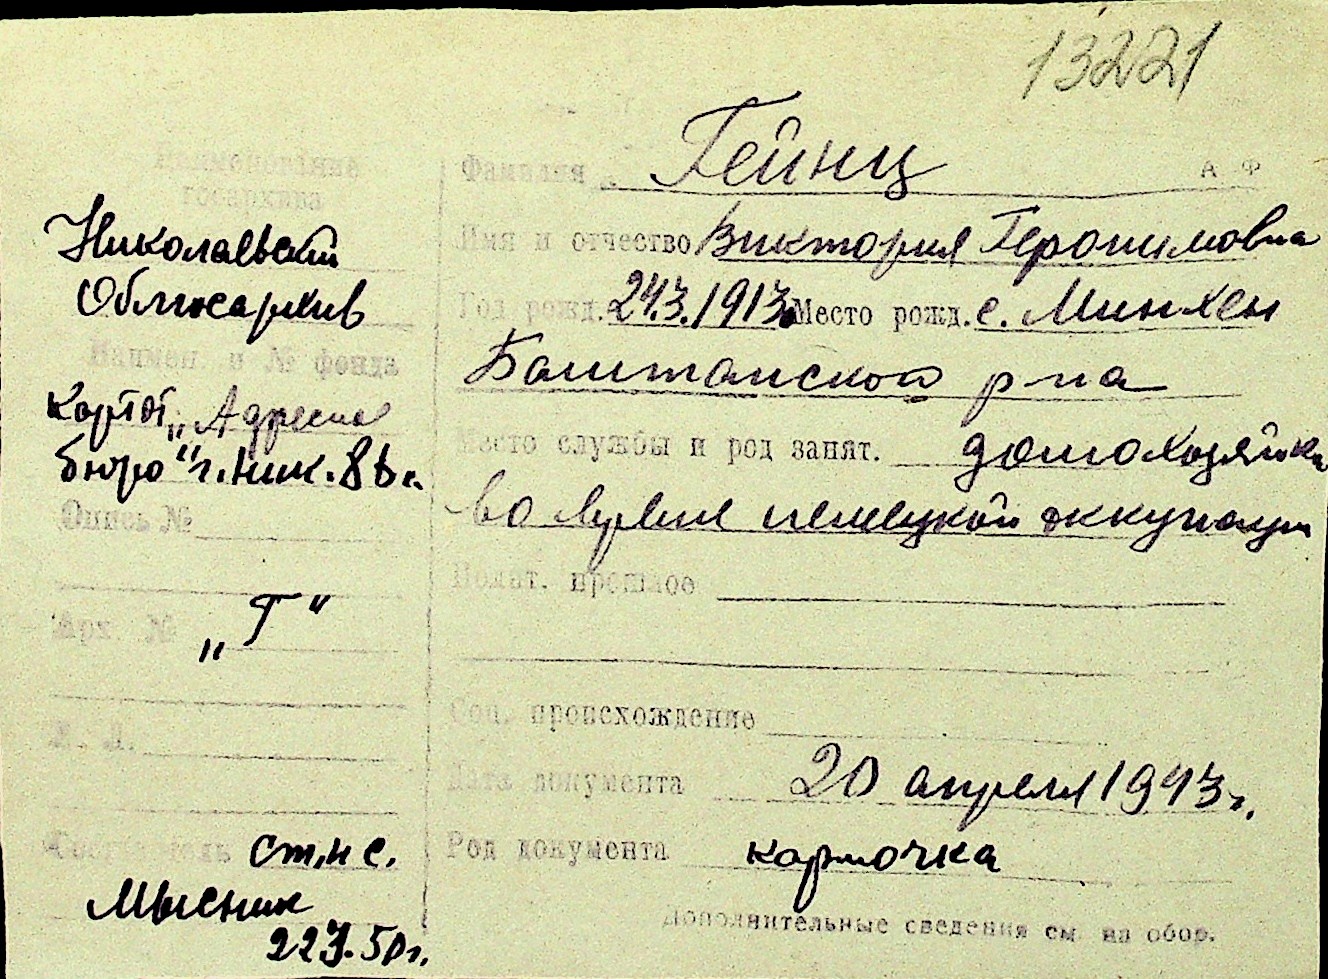 13221
Наименование
госархива
Николаевский
Облгосархив
Наимен. и № фонда
Картот. „Адресн.
бюро" г. Ник.
Опись №
Арх. №
„Г"
К. Л.
Составитель ст. н. с.
Мысник
50 г.
Фамилия Гейнц
А Ф
Имя и отчество Виктория Геронимовна
Год рожд. 24.3.1913 Место рожд. с. Минхен
Баштанского р-на
Место службы и род занят. домохозяйка
во время немецкой оккупации
Полит. прошлое
Соц. происхождение
Дата документа 20 апреля 1943 г.
Род документа карточка
Дополнительные сведения см. на обор.